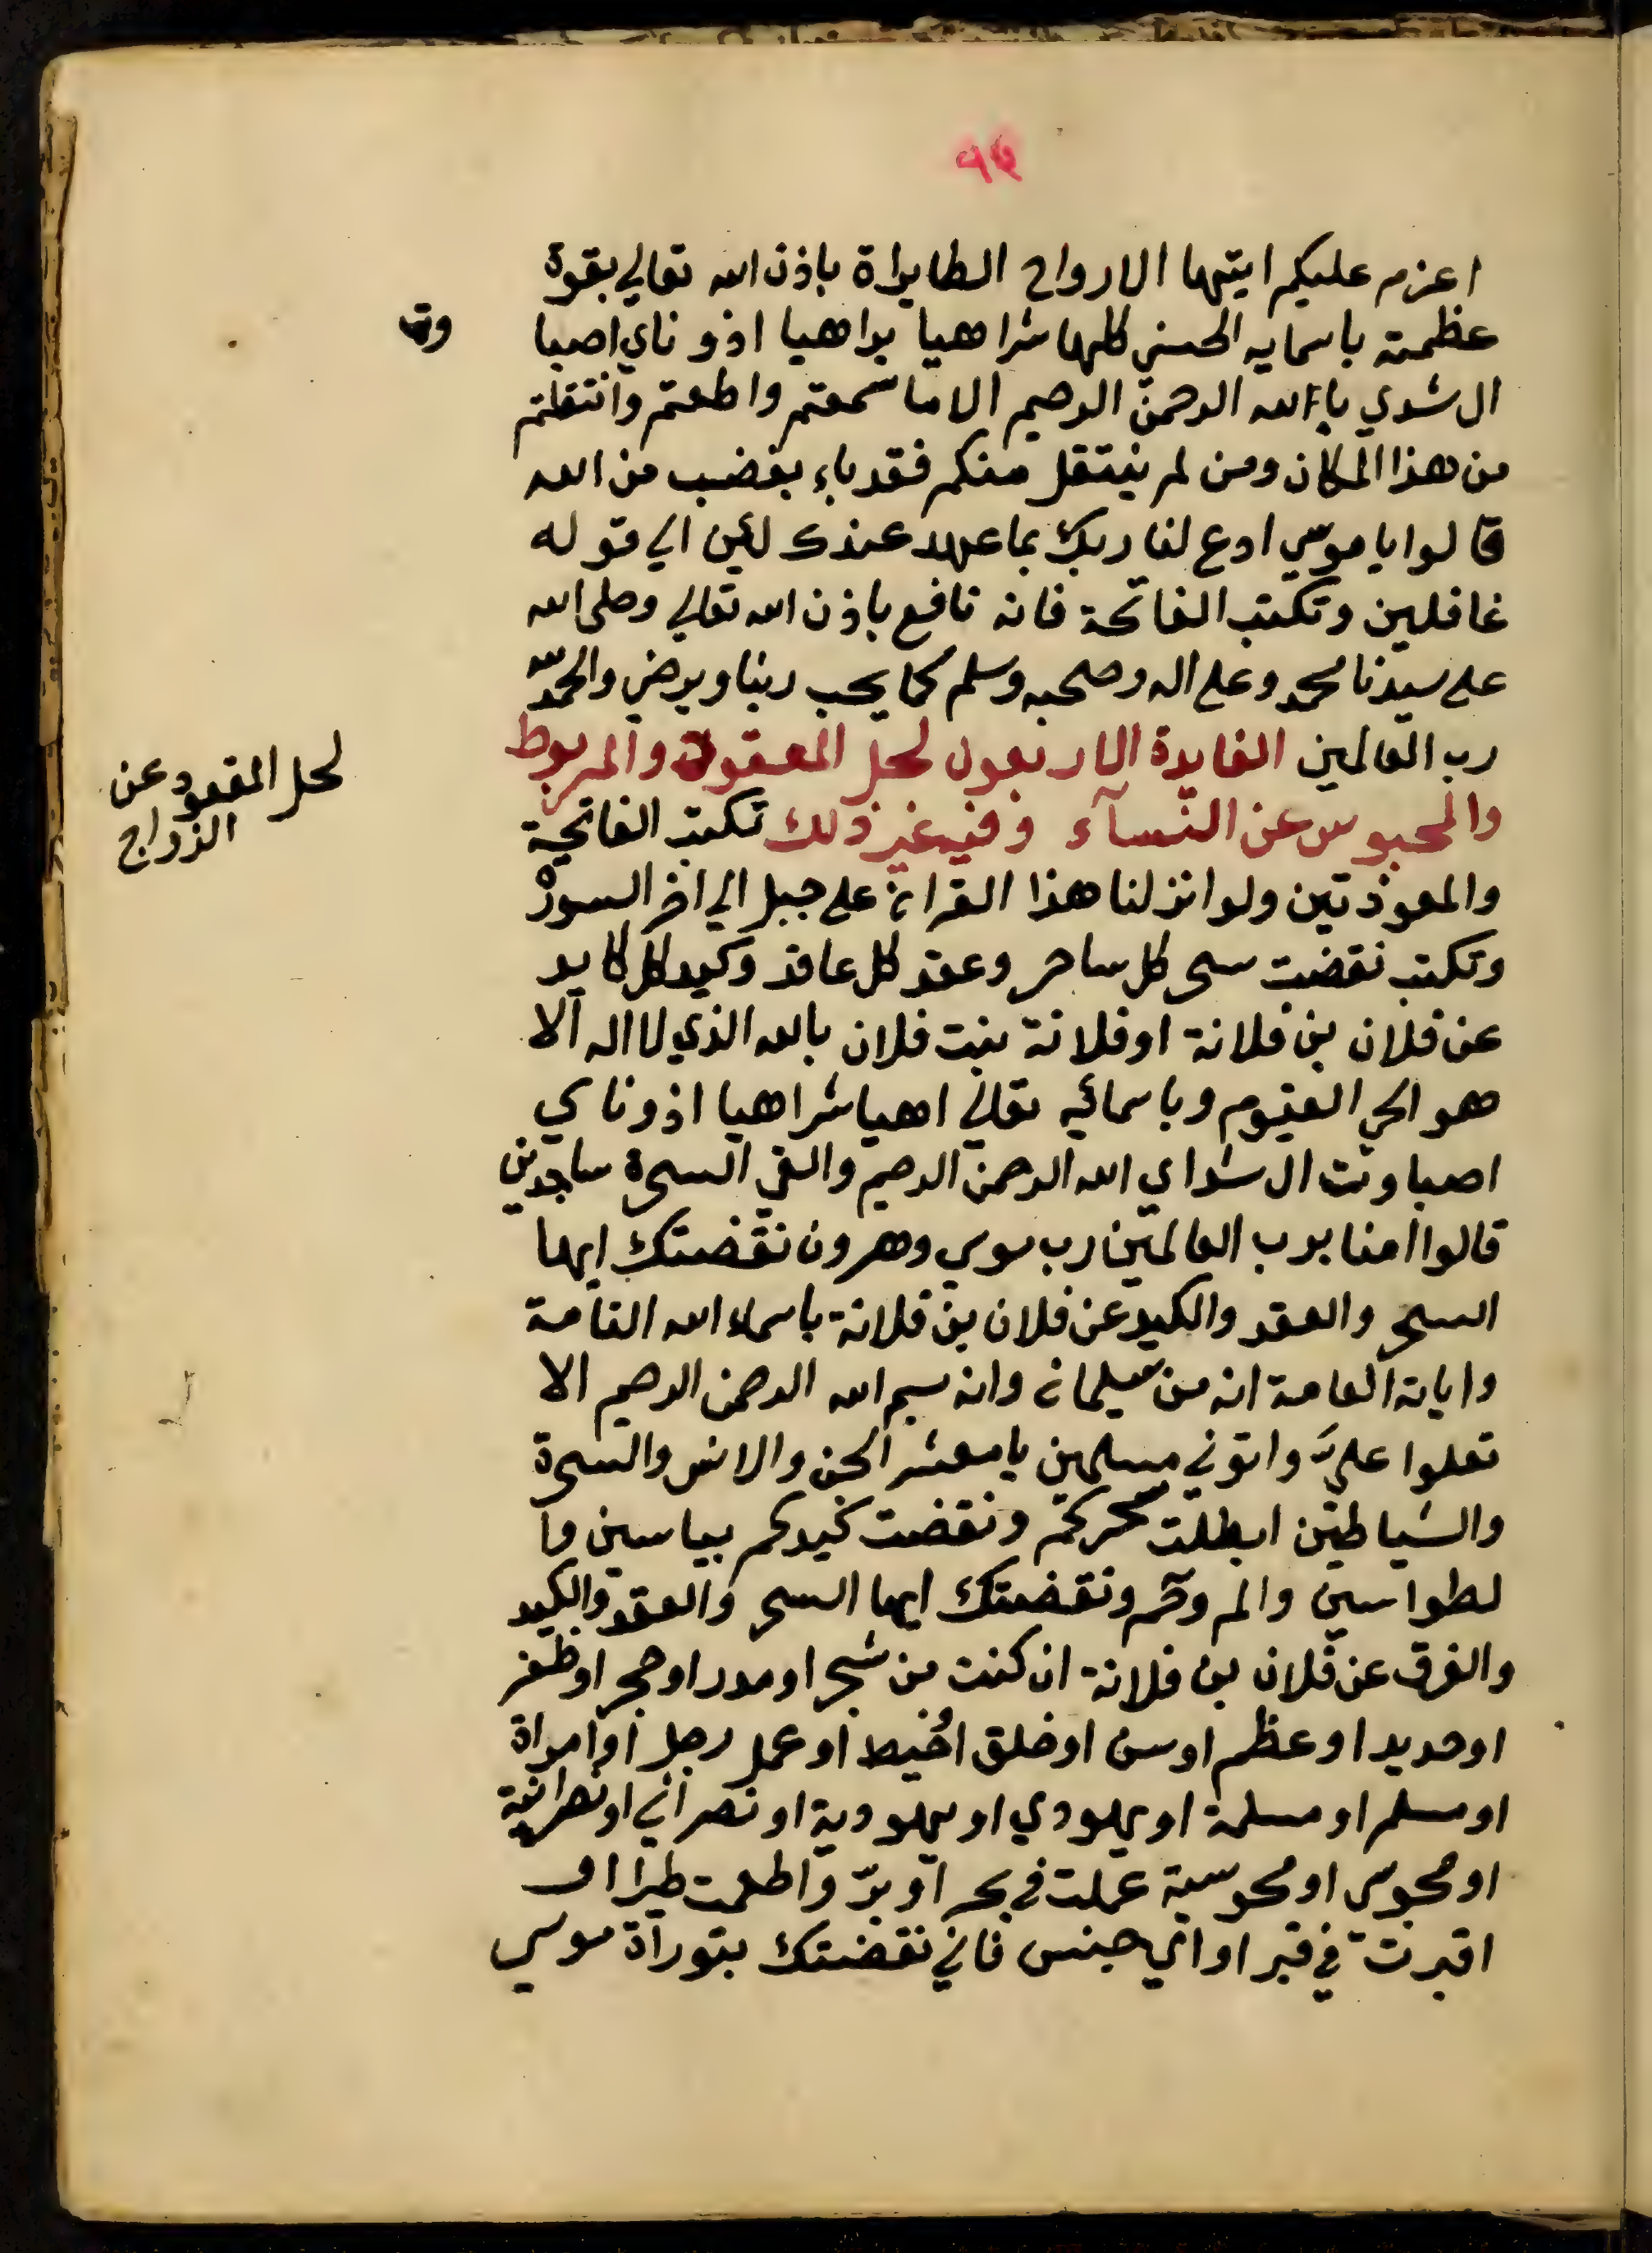 ٩٤
اعزم عليكم ايتها الارواح الطايراة باذن الله تعالى بقوة
عظمته باسمايه الحسنى كلها شراهيا براهيا اذوناي اصبا
وت
ال شدي يا الله الرحمن الرحيم الا ما سمعتم واطعتم وانتقلتم
من هذا المكان ومن لم ينتقل منكم فقد باء بغضب من الله
قالوا يا موسي ادع لنا ربك بما عهد عندك لئن الي قوله
غافلين وتكتب الفاتحة فانه نافع باذن الله تعالي وصلى الله
على سيدنا محمد وعلى اله وصحبه وسلم كما يحب ربنا ويرضي والحمد لله
رب العالمين الفايدة الاربعون لحل المعقود والمربوط
والمحبوس عن النسآء وفي غير ذلك تكتب الفاتحة
لحل المقعود عن
الزواج
والمعوذتين ولو انزلنا هذا القران على جبل الي اخر السورة
وتكتب نقضت سحر كل ساحر وعقد كل عاقد وكيد كل كايد
عن فلان بن فلانة او فلانة بنت فلان بالله الذي لا اله الا
هو الحي القيوم وباسمائه تعالي اهيا شراهيا اذوناي
اصباوت ال شداي الله الرحمن الرحيم والقي السحرة ساجدين
قالوا امنا برب العالمين رب موسي وهرون نقضتك ايها
السحر والعقد والكيد عن فلان بن فلانة باسماء الله التامة
واياته العامة انه من سليمان وانه بسم الله الرحمن الرحيم الا
تعلوا عليّ واتوني مسلمين يا معشر الجن والانس والسحرة
والشياطين ابطلت سحركم ونقضت كيدكم بياسين وا
لطواسين والم وحم ونقضتك ايها السحر والعقد والكيد
والفرق عن فلان بن فلانة ان كنت من شجر او مدر او حجر او ظفر
او حديد او عظم او سن او خلق اخيط او عمل رجل او امراة
او مسلم او مسلمة او يهودي او يهودية او نصراني او نصرانية
او مجوسي او مجوسية عملت في بحر او برّ واطعمت طيرا او
اقبرت في قبر او اي جنس فاني نقضتك بتوراة موسي